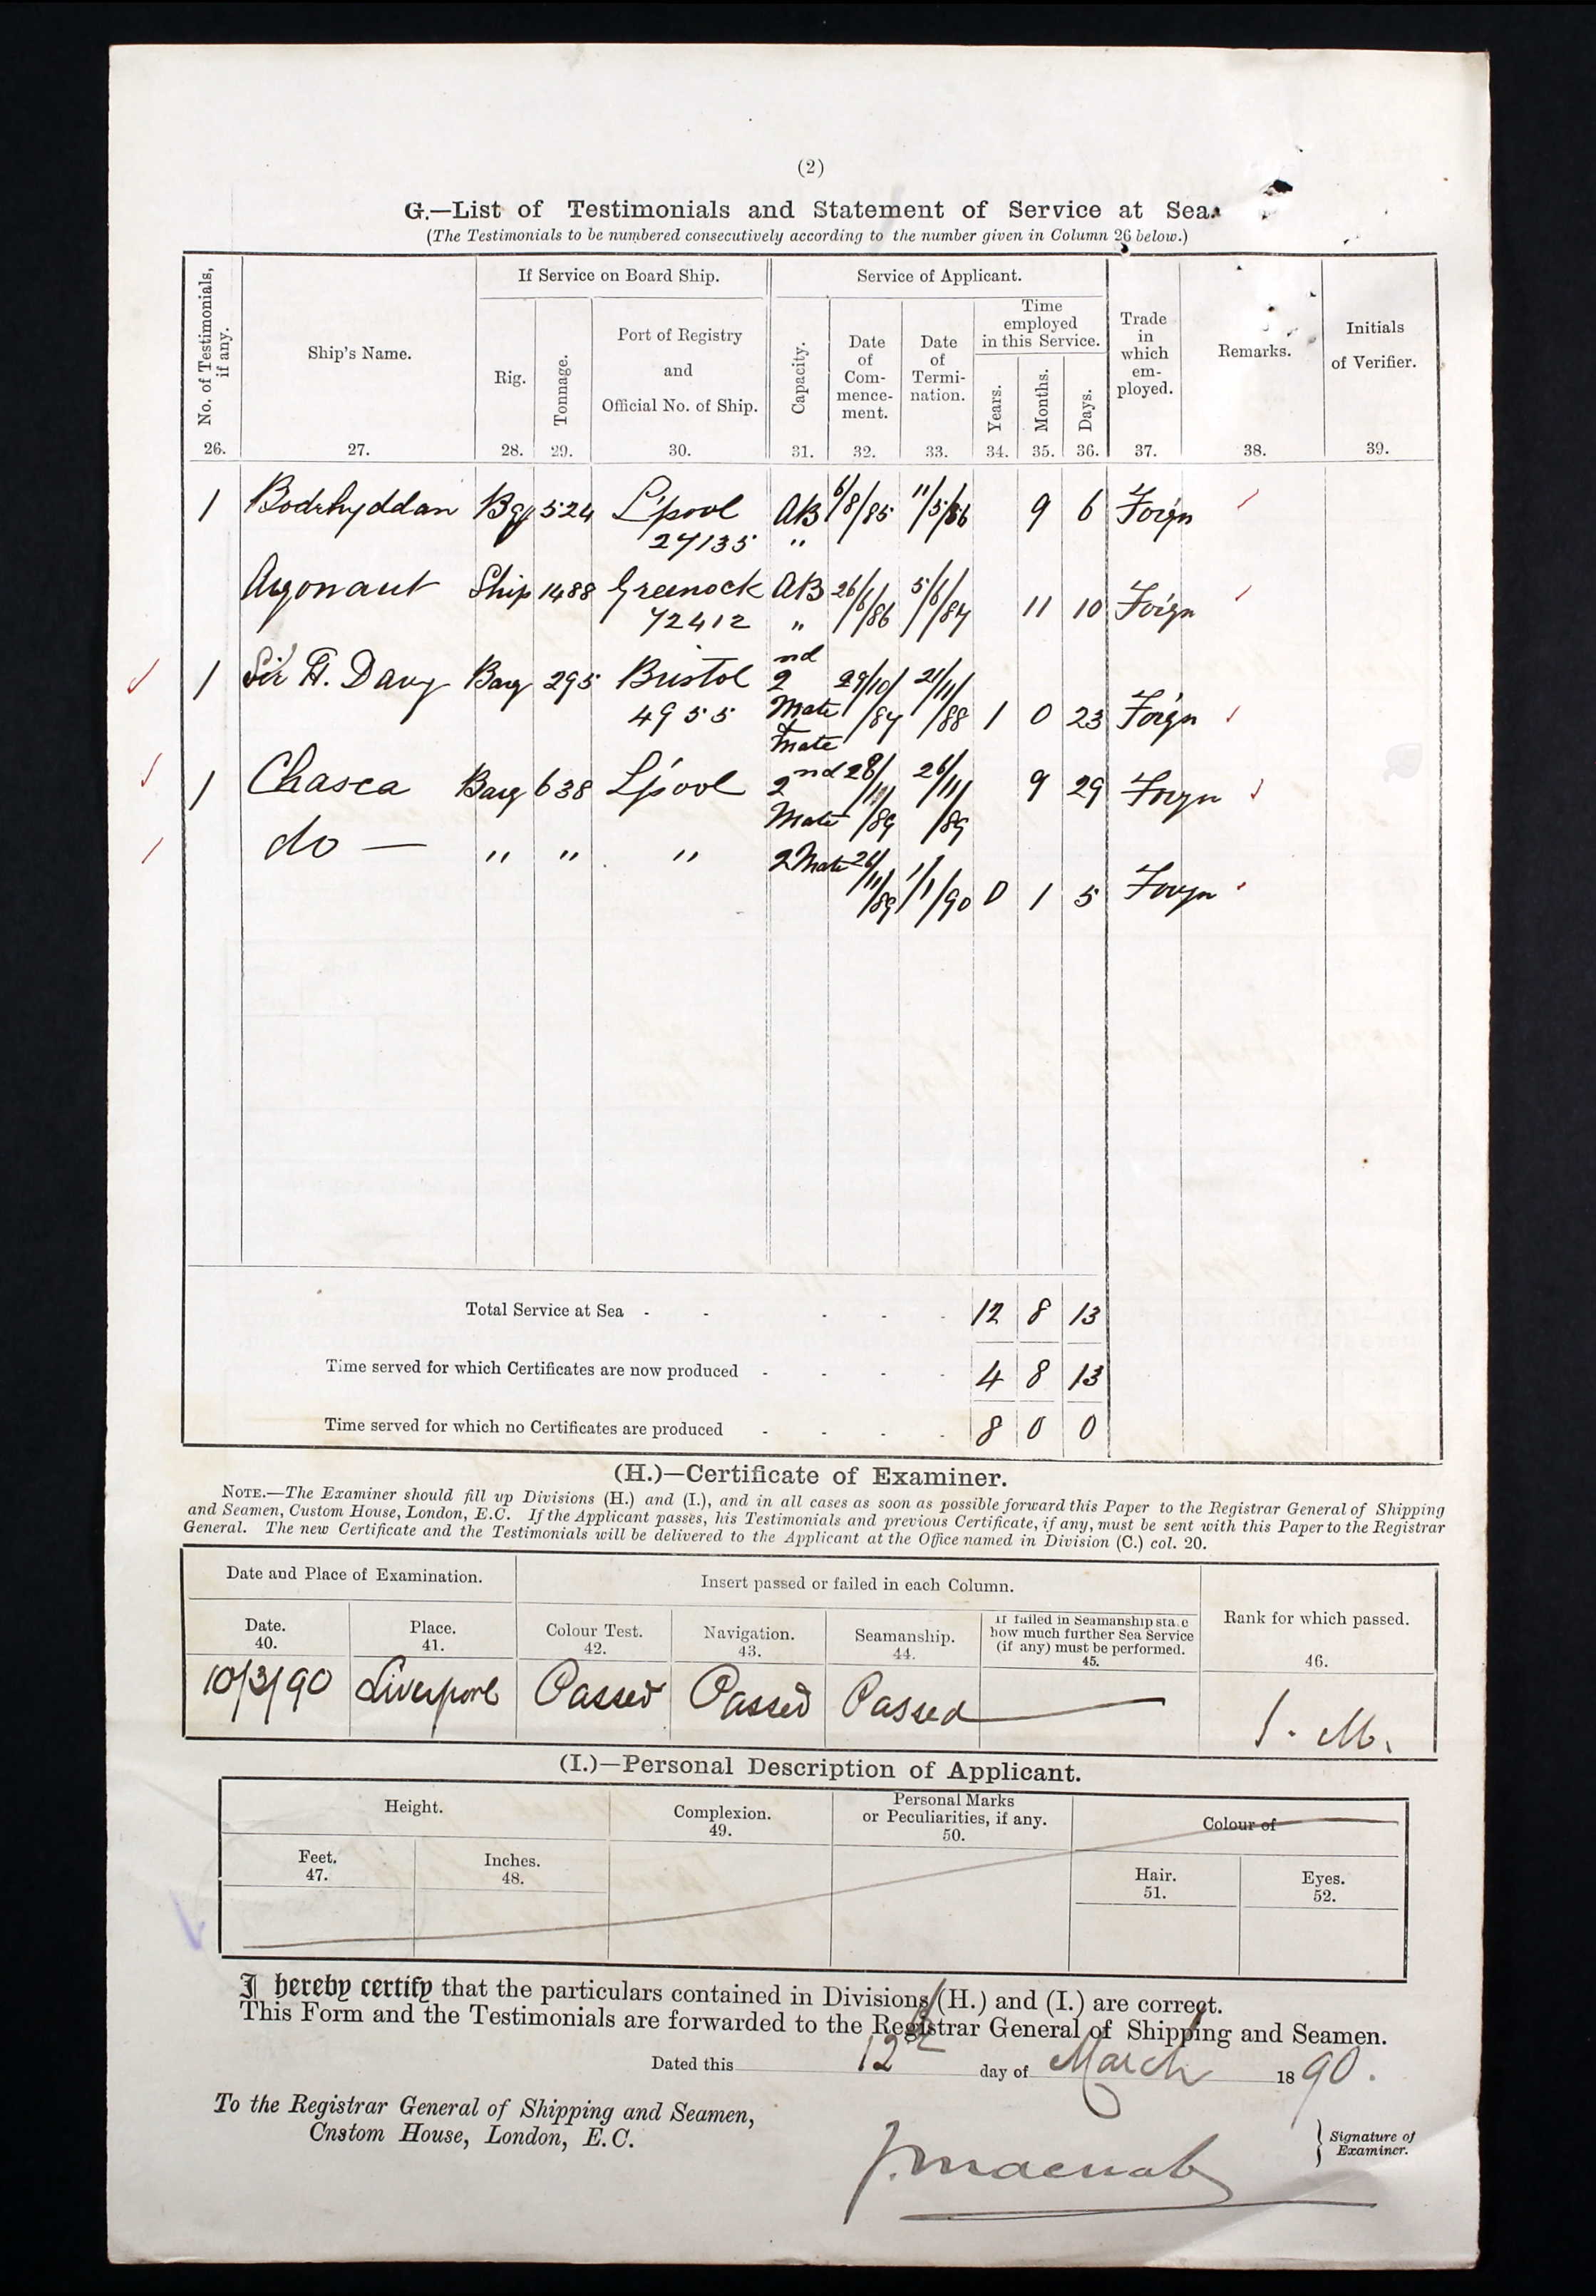 (2)
G.—List of Testimonials and Statement of Service at Sea.
(The Testimonials to be numbered consecutively according to the number given in Column 26 below.)
No. of Testimonials, if any.
26.
Ship's Name.
27.
If Service on Board Ship.
Rig.
28.
Tonnage.
29.
Port of Registry
and
Official No. of Ship.
30.
Service of Applicant.
Capacity.
31.
Date
of
Com-
mence-
ment.
32.
Date
of
Termi-
nation.
33.
Time
employed
in this Service.
Years.
34.
Months.
35.
Days.
36.
Trade
in
which
em-
ployed.
37.
Remarks.
38.
Initials
of Verifier.
39.
1 Bodrhyddan Bq 524 L'pool AB 6/8/85 11/5/86 9 6 Foign
27135 "
Argonaut Ship 1488 Greenock AB 26/6/86 5/6/87 11 10 Foign
72412 "
1 Sir H. Davy Barq 295 Bristol 2nd 29/10/87 21/11/88 1 0 23 Foign
4955 Mate
& Mate
1 Chasca Barq 638 L'pool 2nd Mate 28/1/89 26/11/89 9 29 Foign
do — " " " 2 Mate 26/11/89 1/1/90 0 1 5 Foign
Total Service at Sea - - - - - 12 8 13
Time served for which Certificates are now produced - - - - 4 8 13
Time served for which no Certificates are produced - - - - 8 0 0
(H.)—Certificate of Examiner.
NOTE.—The Examiner should fill up Divisions (H.) and (I.), and in all cases as soon as possible forward this Paper to the Registrar General of Shipping
and Seamen, Custom House, London, E.C. If the Applicant passes, his Testimonials and previous Certificate, if any, must be sent with this Paper to the Registrar
General. The new Certificate and the Testimonials will be delivered to the Applicant at the Office named in Division (C.) col. 20.
Date and Place of Examination.
Insert passed or failed in each Column.
Rank for which passed.
46.
Date.
40.
Place.
41.
Colour Test.
42.
Navigation.
43.
Seamanship.
44.
If failed in Seamanship state
how much further Sea Service
(if any) must be performed.
45.
10/3/90 Liverpool Passed Passed Passed — 1. M.
(I.)—Personal Description of Applicant.
Height.
Complexion.
49.
Personal Marks
or Peculiarities, if any.
50.
Colour of
Feet.
47.
Inches.
48.
Hair.
51.
Eyes.
52.
I hereby certify that the particulars contained in Divisions (H.) and (I.) are correct.
This Form and the Testimonials are forwarded to the Registrar General of Shipping and Seamen.
Dated this 12th day of March 1890.
To the Registrar General of Shipping and Seamen,
Custom House, London, E.C.
J. Macnab
Signature of
Examiner.